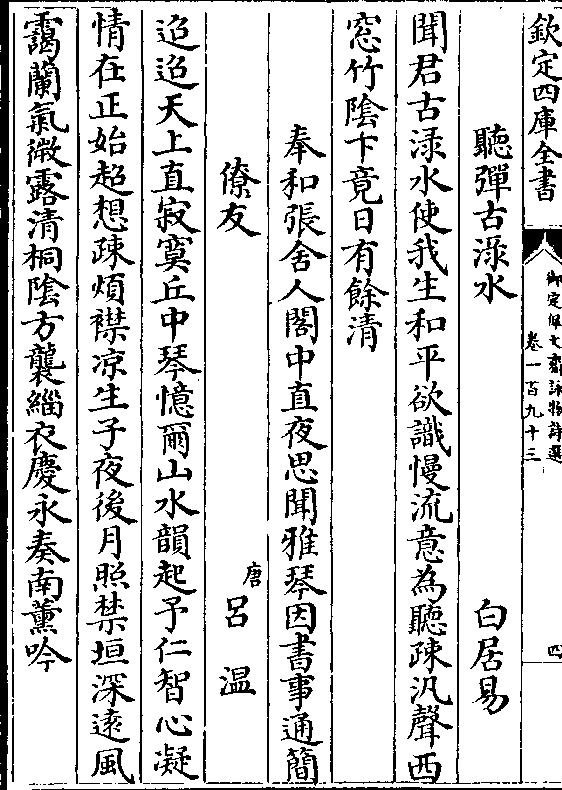 欽定四庫全書
御定佩文齋詠物詩選
卷一百九十三
四
聽彈古渌水
白居易
聞君古渌水使我生和平欲識慢流意為聽疎汎聲西
窓竹陰下竟日有餘清
奉和張舍人閣中直夜思聞雅琴因書事通簡
僚友
唐
吕溫
迢迢天上直寂寞丘中琴憶爾山水韻起予仁智心凝
情在正始超想疎煩襟凉生子夜後月照禁垣深逺風
靄蘭氣微露清桐陰方襲緇衣慶永奏南薰吟